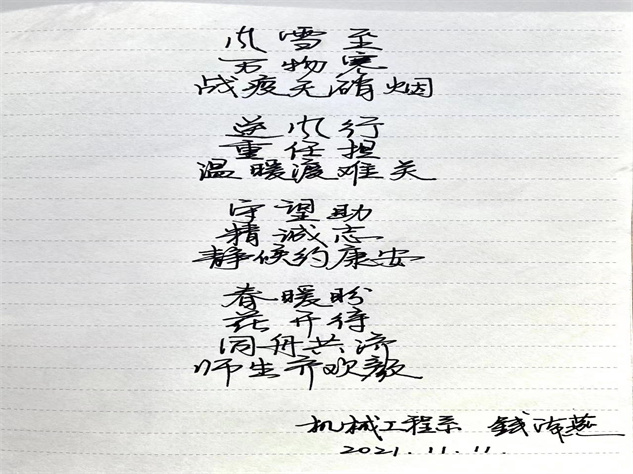 风雪至
万物寒
战疫无硝烟
逆风行
重任担
温暖渡难关
守望助
精诚志
静候约康安
春暖盼
花开待
同舟共济
师生齐欢颜
机械工程系 钱海燕
2021.11.11.